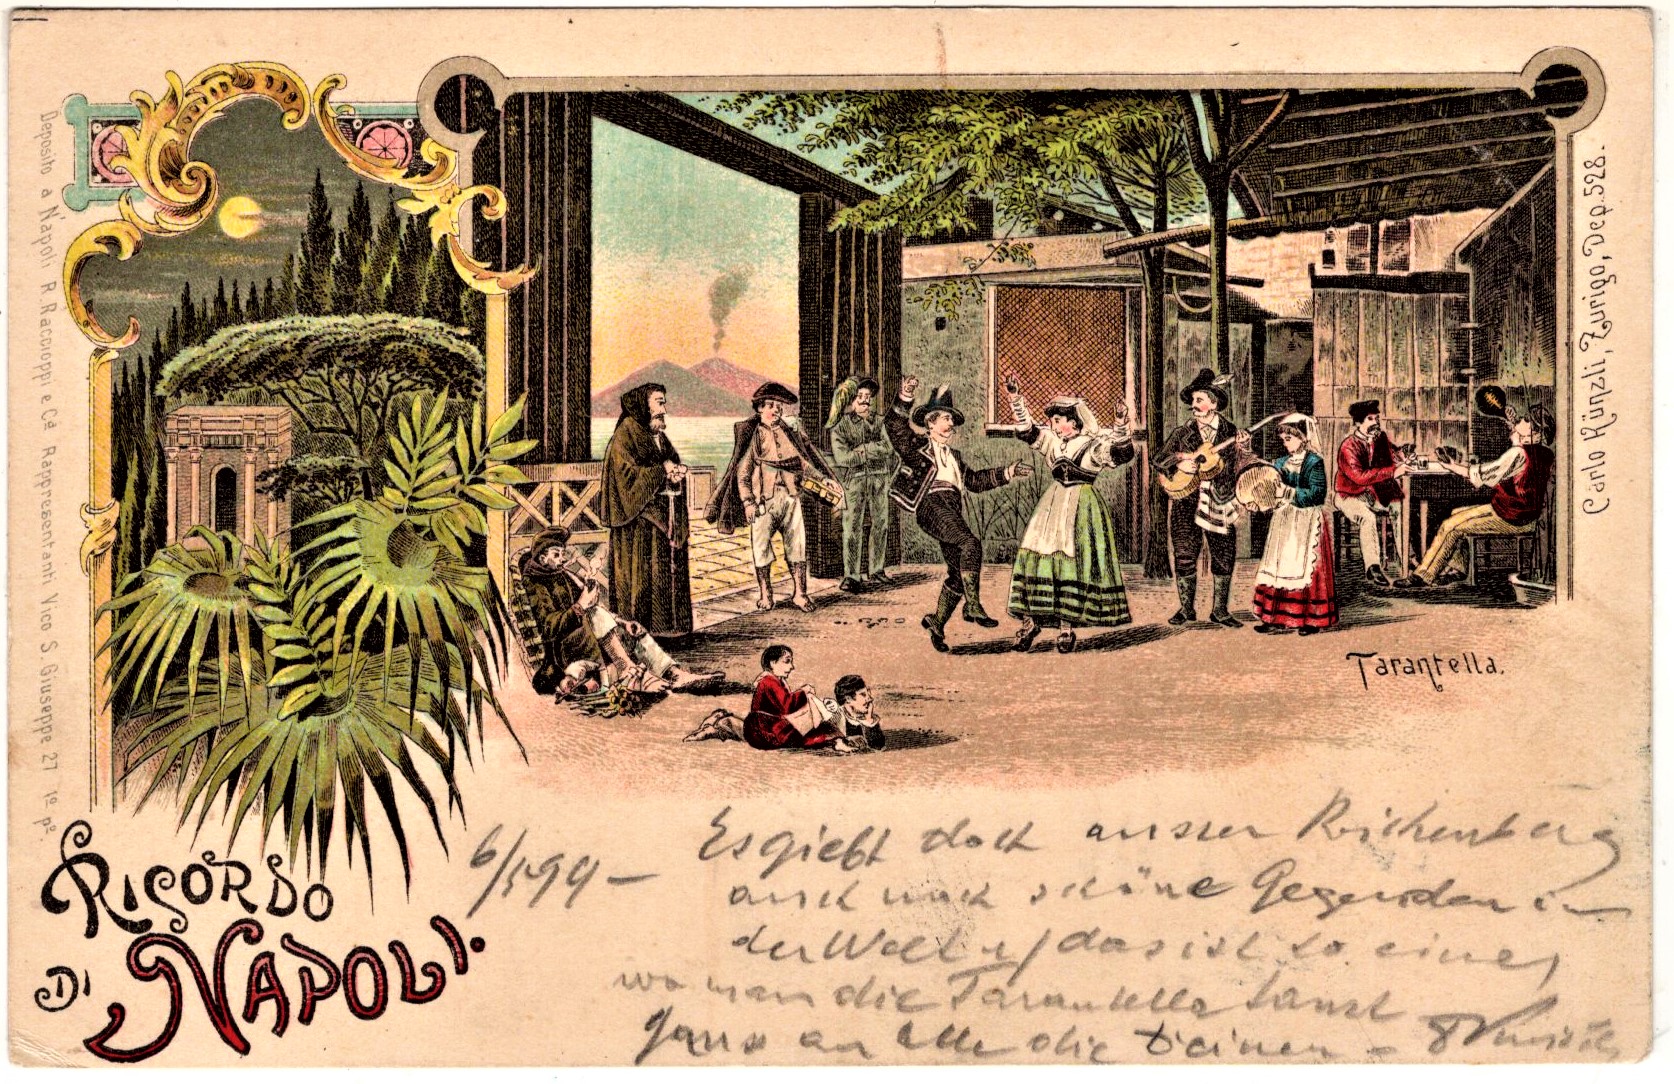 Deposito a Napoli R. Raccioppi e Cª Rappresentanti Vico S. Giuseppe 27 1º pº
Carlo Künzli, Zurigo, Dep. 528.
Tarantella.
RICORDO
DI NAPOLI.
6/5 99 –
Es giebt doch ausser Reichenberg
auch noch schöne Gegenden in
der Welt u/ das ist so eine,
wo man die Tarantella tanzt
an alle die Deinen –